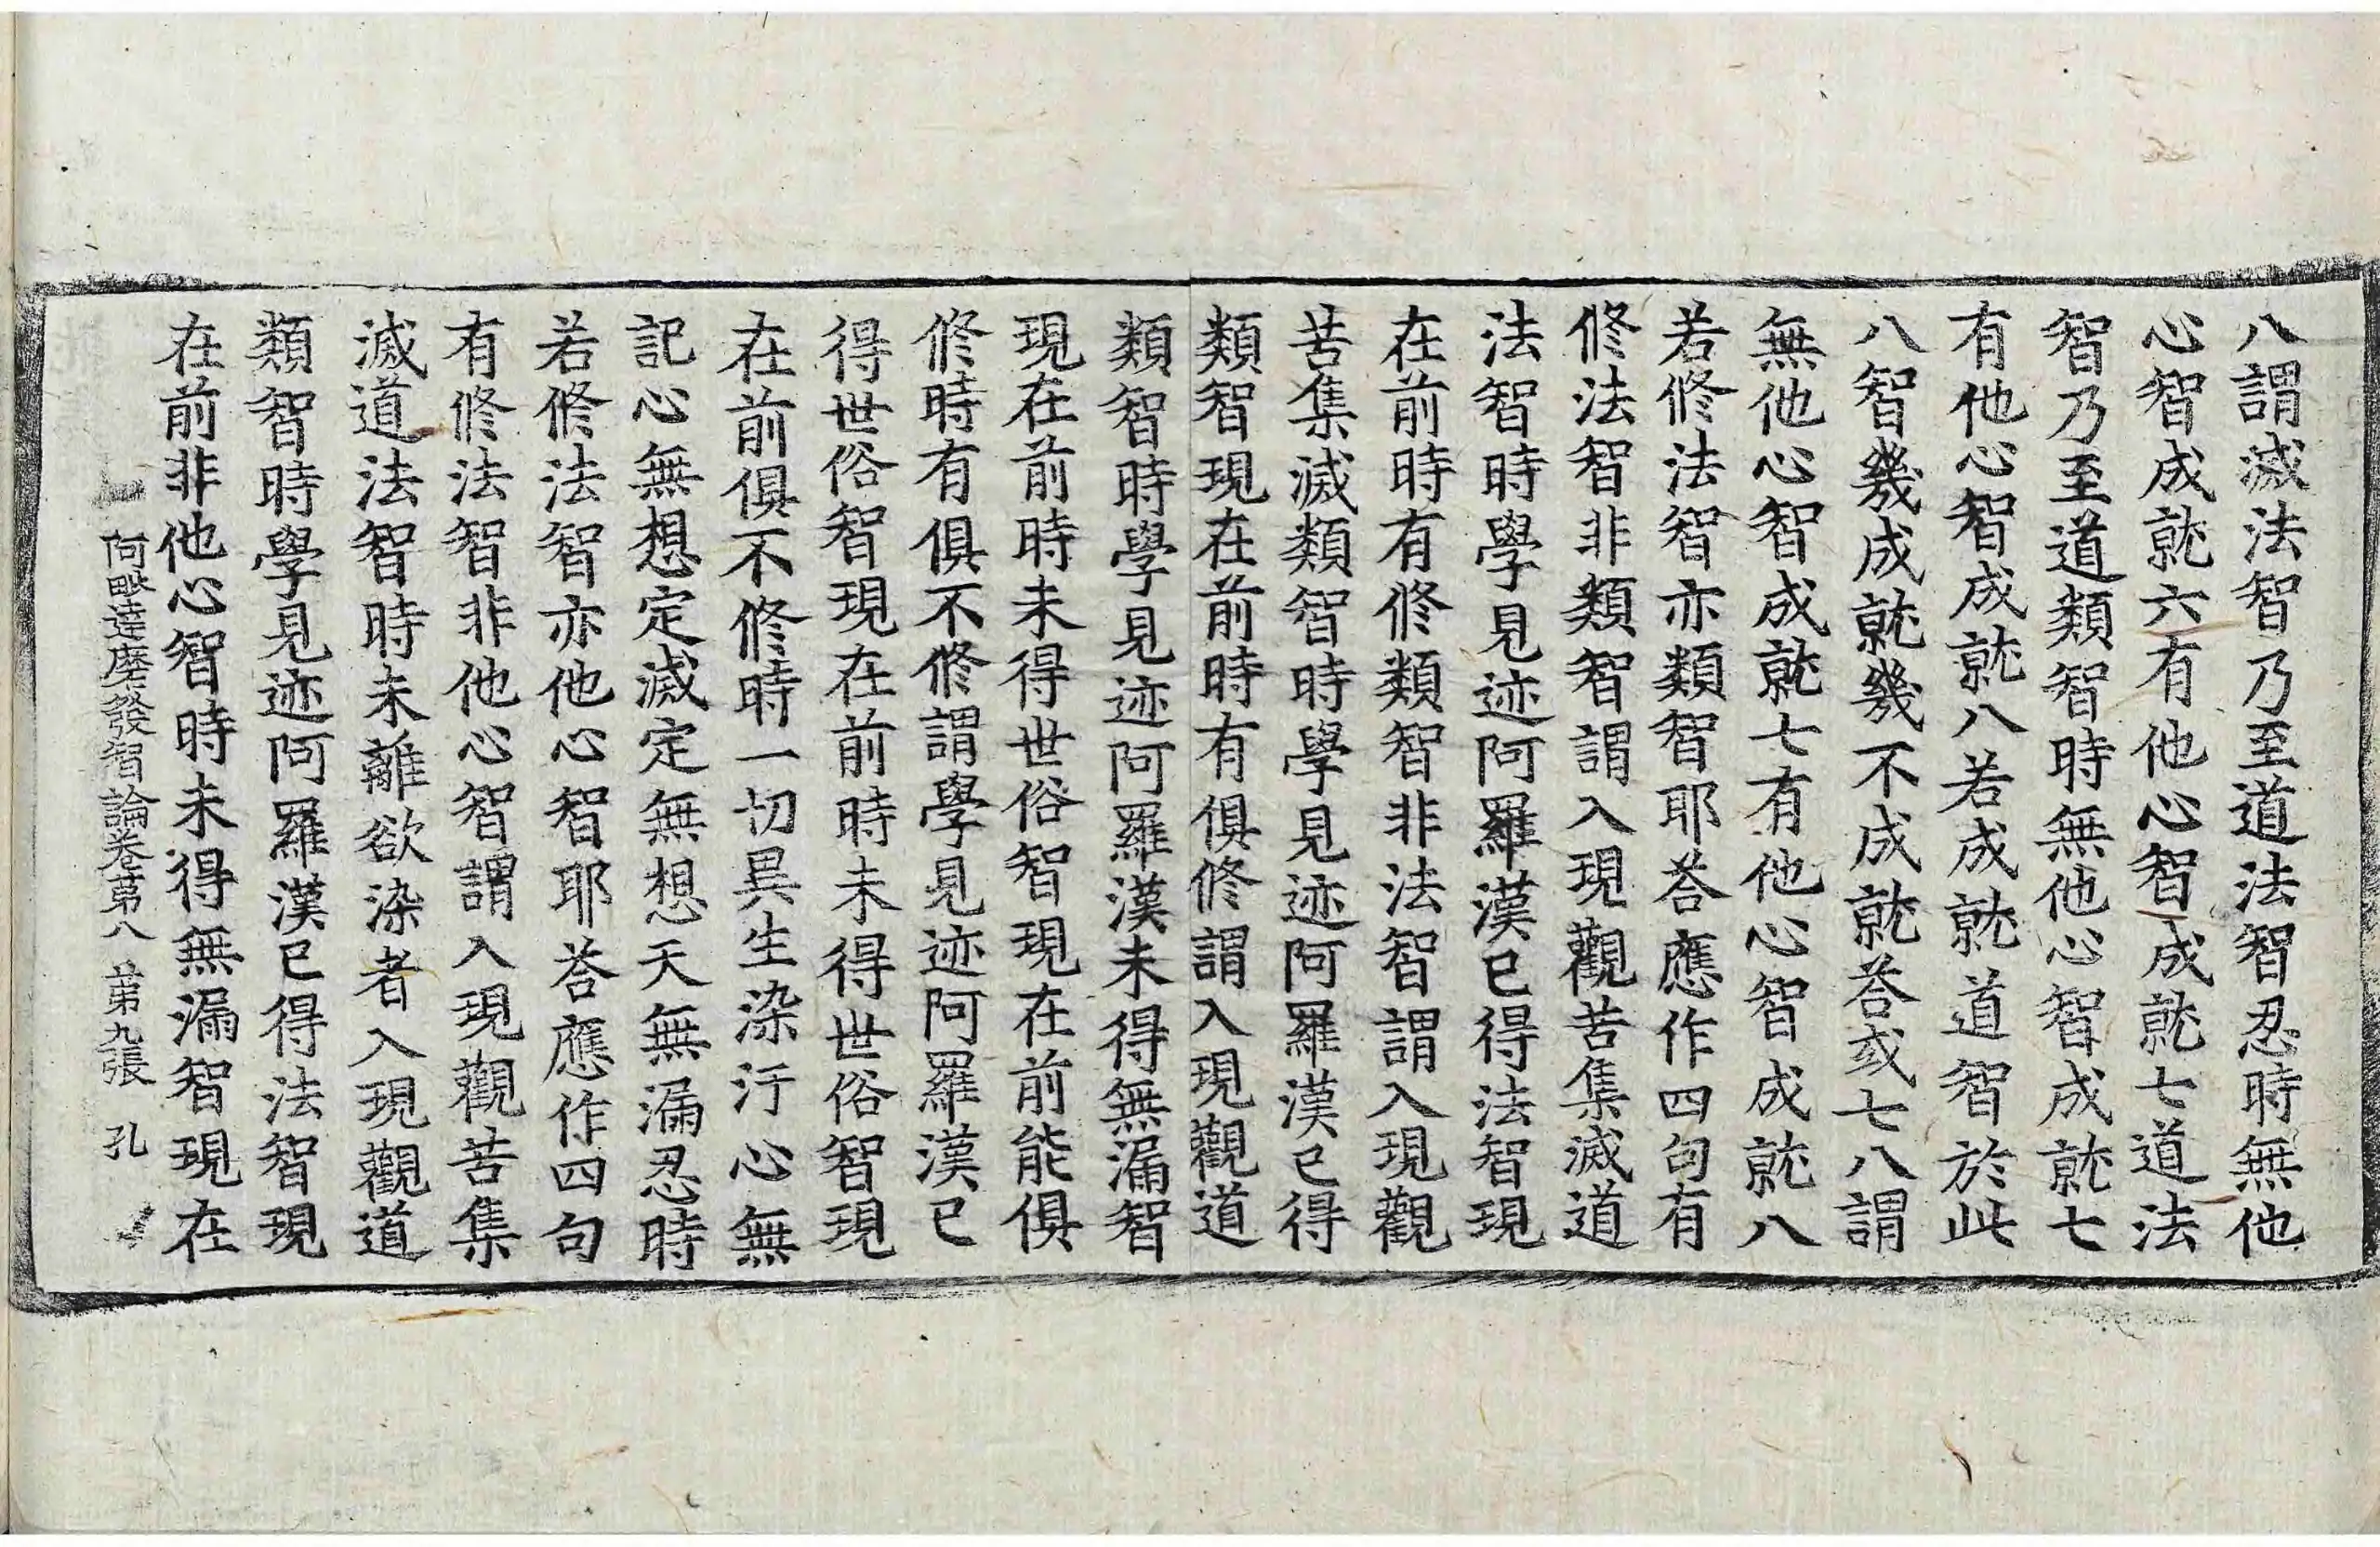 八謂滅法智乃至道法智忍時無他
心智成就六有他心智成就七道法
智乃至道類智時無他心智成就七
有他心智成就八若成就道智於此
八智幾成就幾不成就荅或七八謂
無他心智成就七有他心智成就八
若修法智亦類智耶荅應作四句有
修法智非類智謂入現觀苦集滅道
法智時學見迹阿羅漢已得法智現
在前時有修類智非法智謂入現觀
苦集滅類智時學見迹阿羅漢已得
類智現在前時有俱修謂入現觀道
類智時學見迹阿羅漢未得無漏智
現在前時未得世俗智現在前能俱
修時有俱不修謂學見迹阿羅漢已
得世俗智現在前時未得世俗智現
在前俱不修時一切異生染汙心無
記心無想定滅定無想天無漏忍時
若修法智亦他心智耶荅應作四句
有修法智非他心智謂入現觀苦集
滅道法智時未離欲染者入現觀道
類智時學見迹阿羅漢已得法智現
在前非他心智時未得無漏智現在
阿毗達磨發智論卷第八 第九張 孔